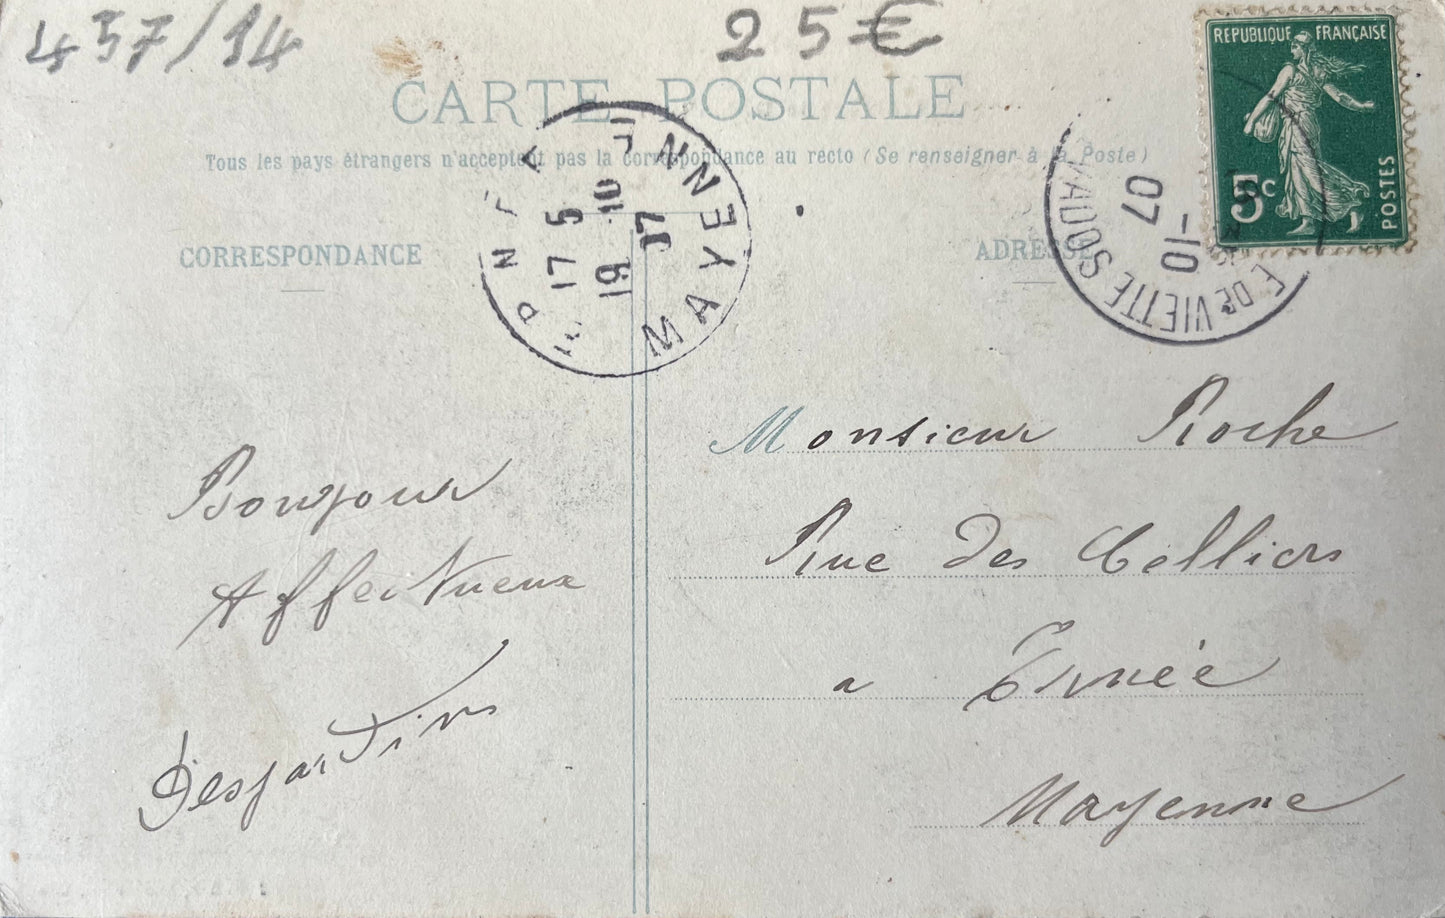 437/14
25€
REPUBLIQUE FRANÇAISE
5c
POSTES
CARTE POSTALE
Tous les pays étrangers n'acceptent pas la correspondance au recto (Se renseigner à la Poste)
CORRESPONDANCE
ADRESSE
MAYENNE
17 5
19 10
07
-10
07
DE VIETTE
Monsieur Roche
Rue des Celliers
a Ernée
Mayenne
Bonjour
Affectueux
Desjardins